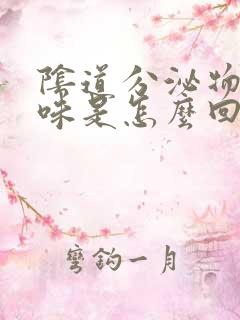 陰道分泌物
味是怎麼回
彎鈎一月